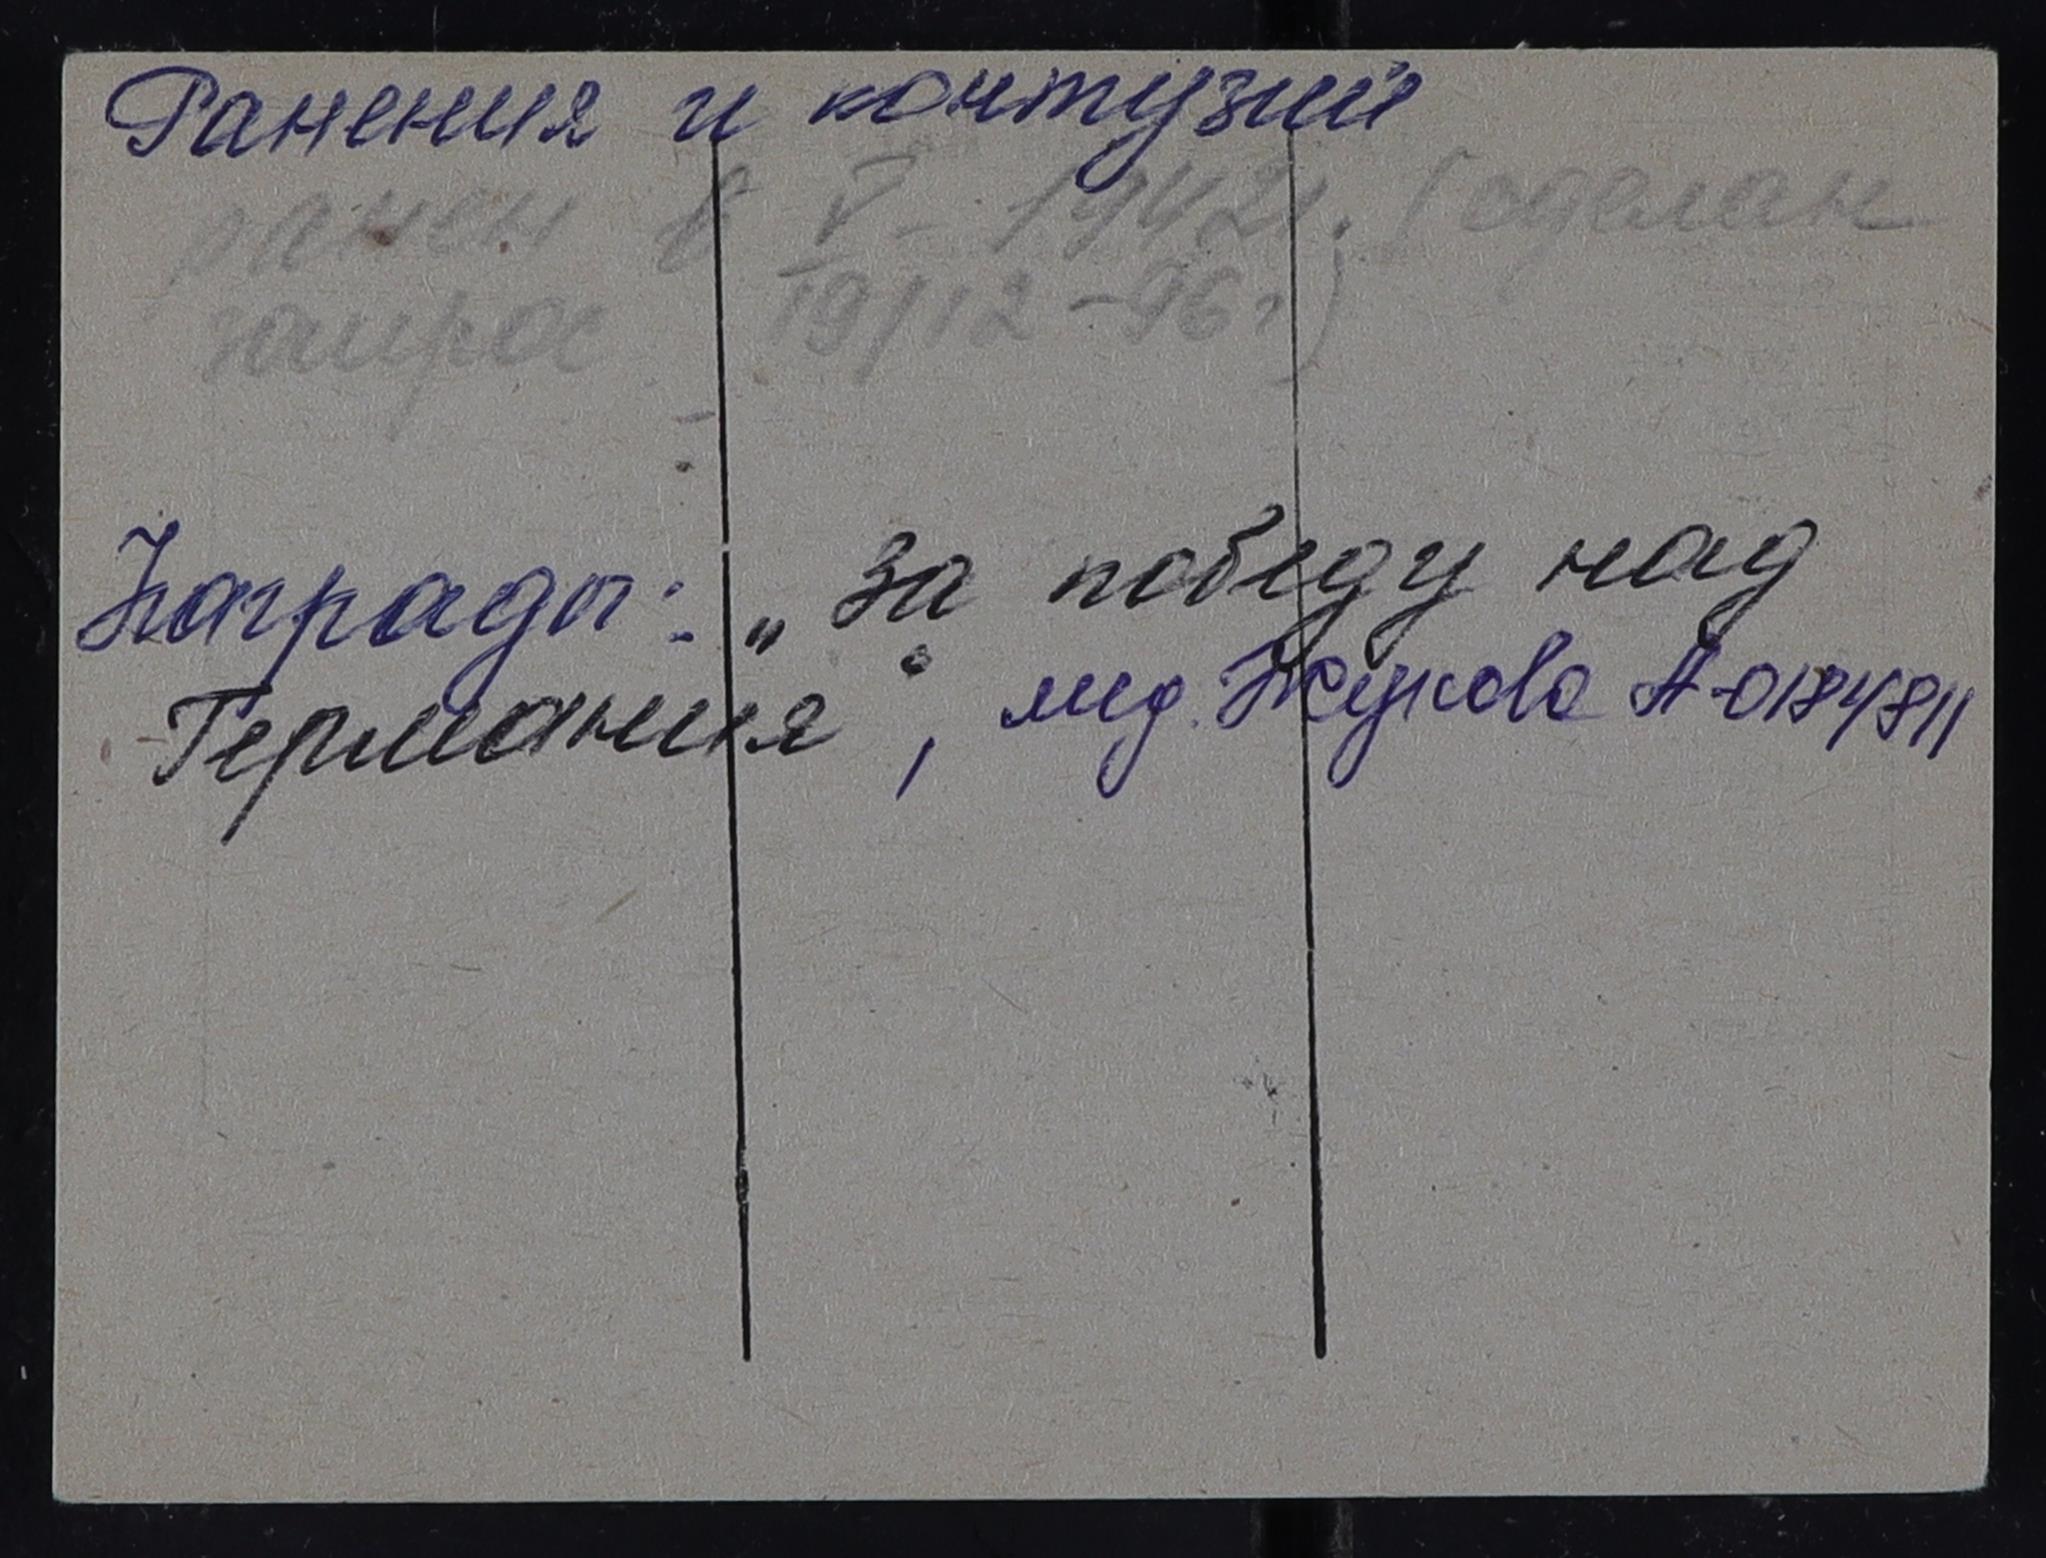 Ранения и контузий
ранен в V - 1942г. (сделан
запрос 19/12 - 96г)
Награды: „За победу над
Германия", мед. Жукова А-0184811